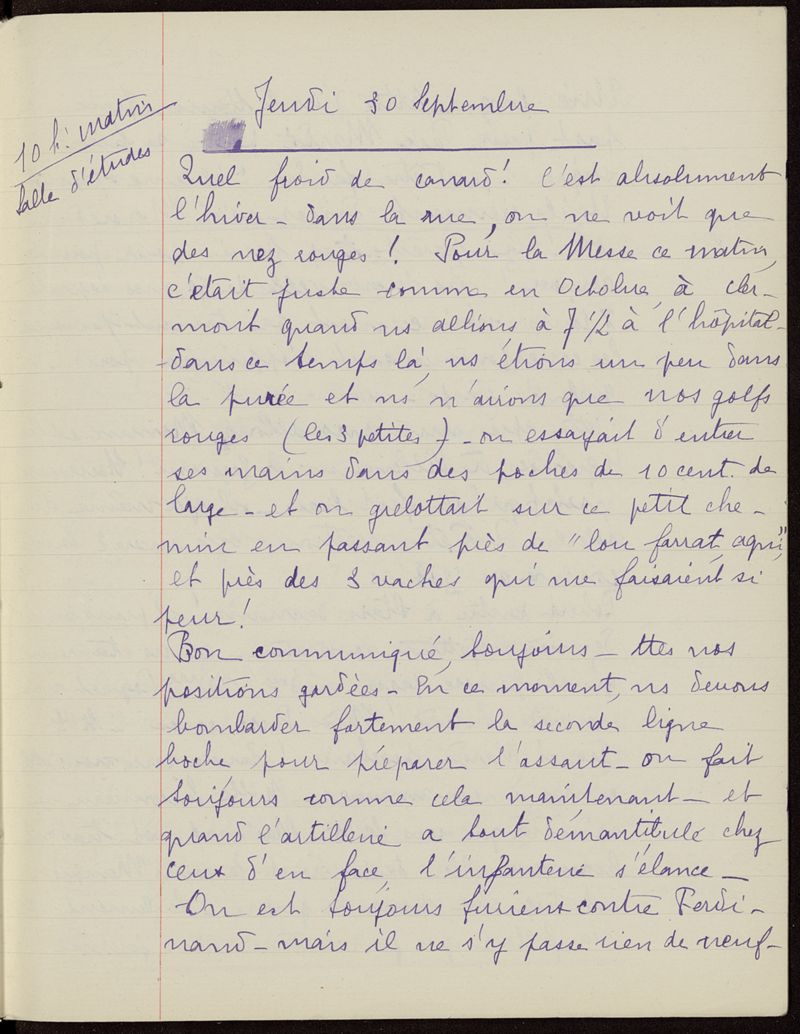 Jeudi 30 Septembre
10 h: matin
Salle d'études
Quel froid de canard! C'est absolument
l'hiver - dans la rue, on ne voit que
des nez rouges! Pour la Messe ce matin,
c'était juste comme en Octobre, à Cler-
mont quand ns allions à 7 1/2 à l'hôpital -
- dans ce temps là, ns étions un peu dans
la purée et ns n'avions que nos golfs
rouges (les 3 petites) - on essayait d'entrer
ses mains dans des poches de 10 cent. de
large - et on grelottait sur ce petit che-
min en passant près de "lou farrat, aqui",
et près des 3 vaches qui me faisaient si
peur!
Bon communiqué, toujours - ttes nos
positions gardées - En ce moment, ns devons
bombarder fortement la seconde ligne
boche pour préparer l'assaut - on fait
toujours comme cela maintenant - et
quand l'artillerie a tout démantibulé chez
ceux d'en face, l'infanterie s'élance -
On est toujours furieux contre Ferdi-
nand - mais il ne s'y passe rien de neuf -